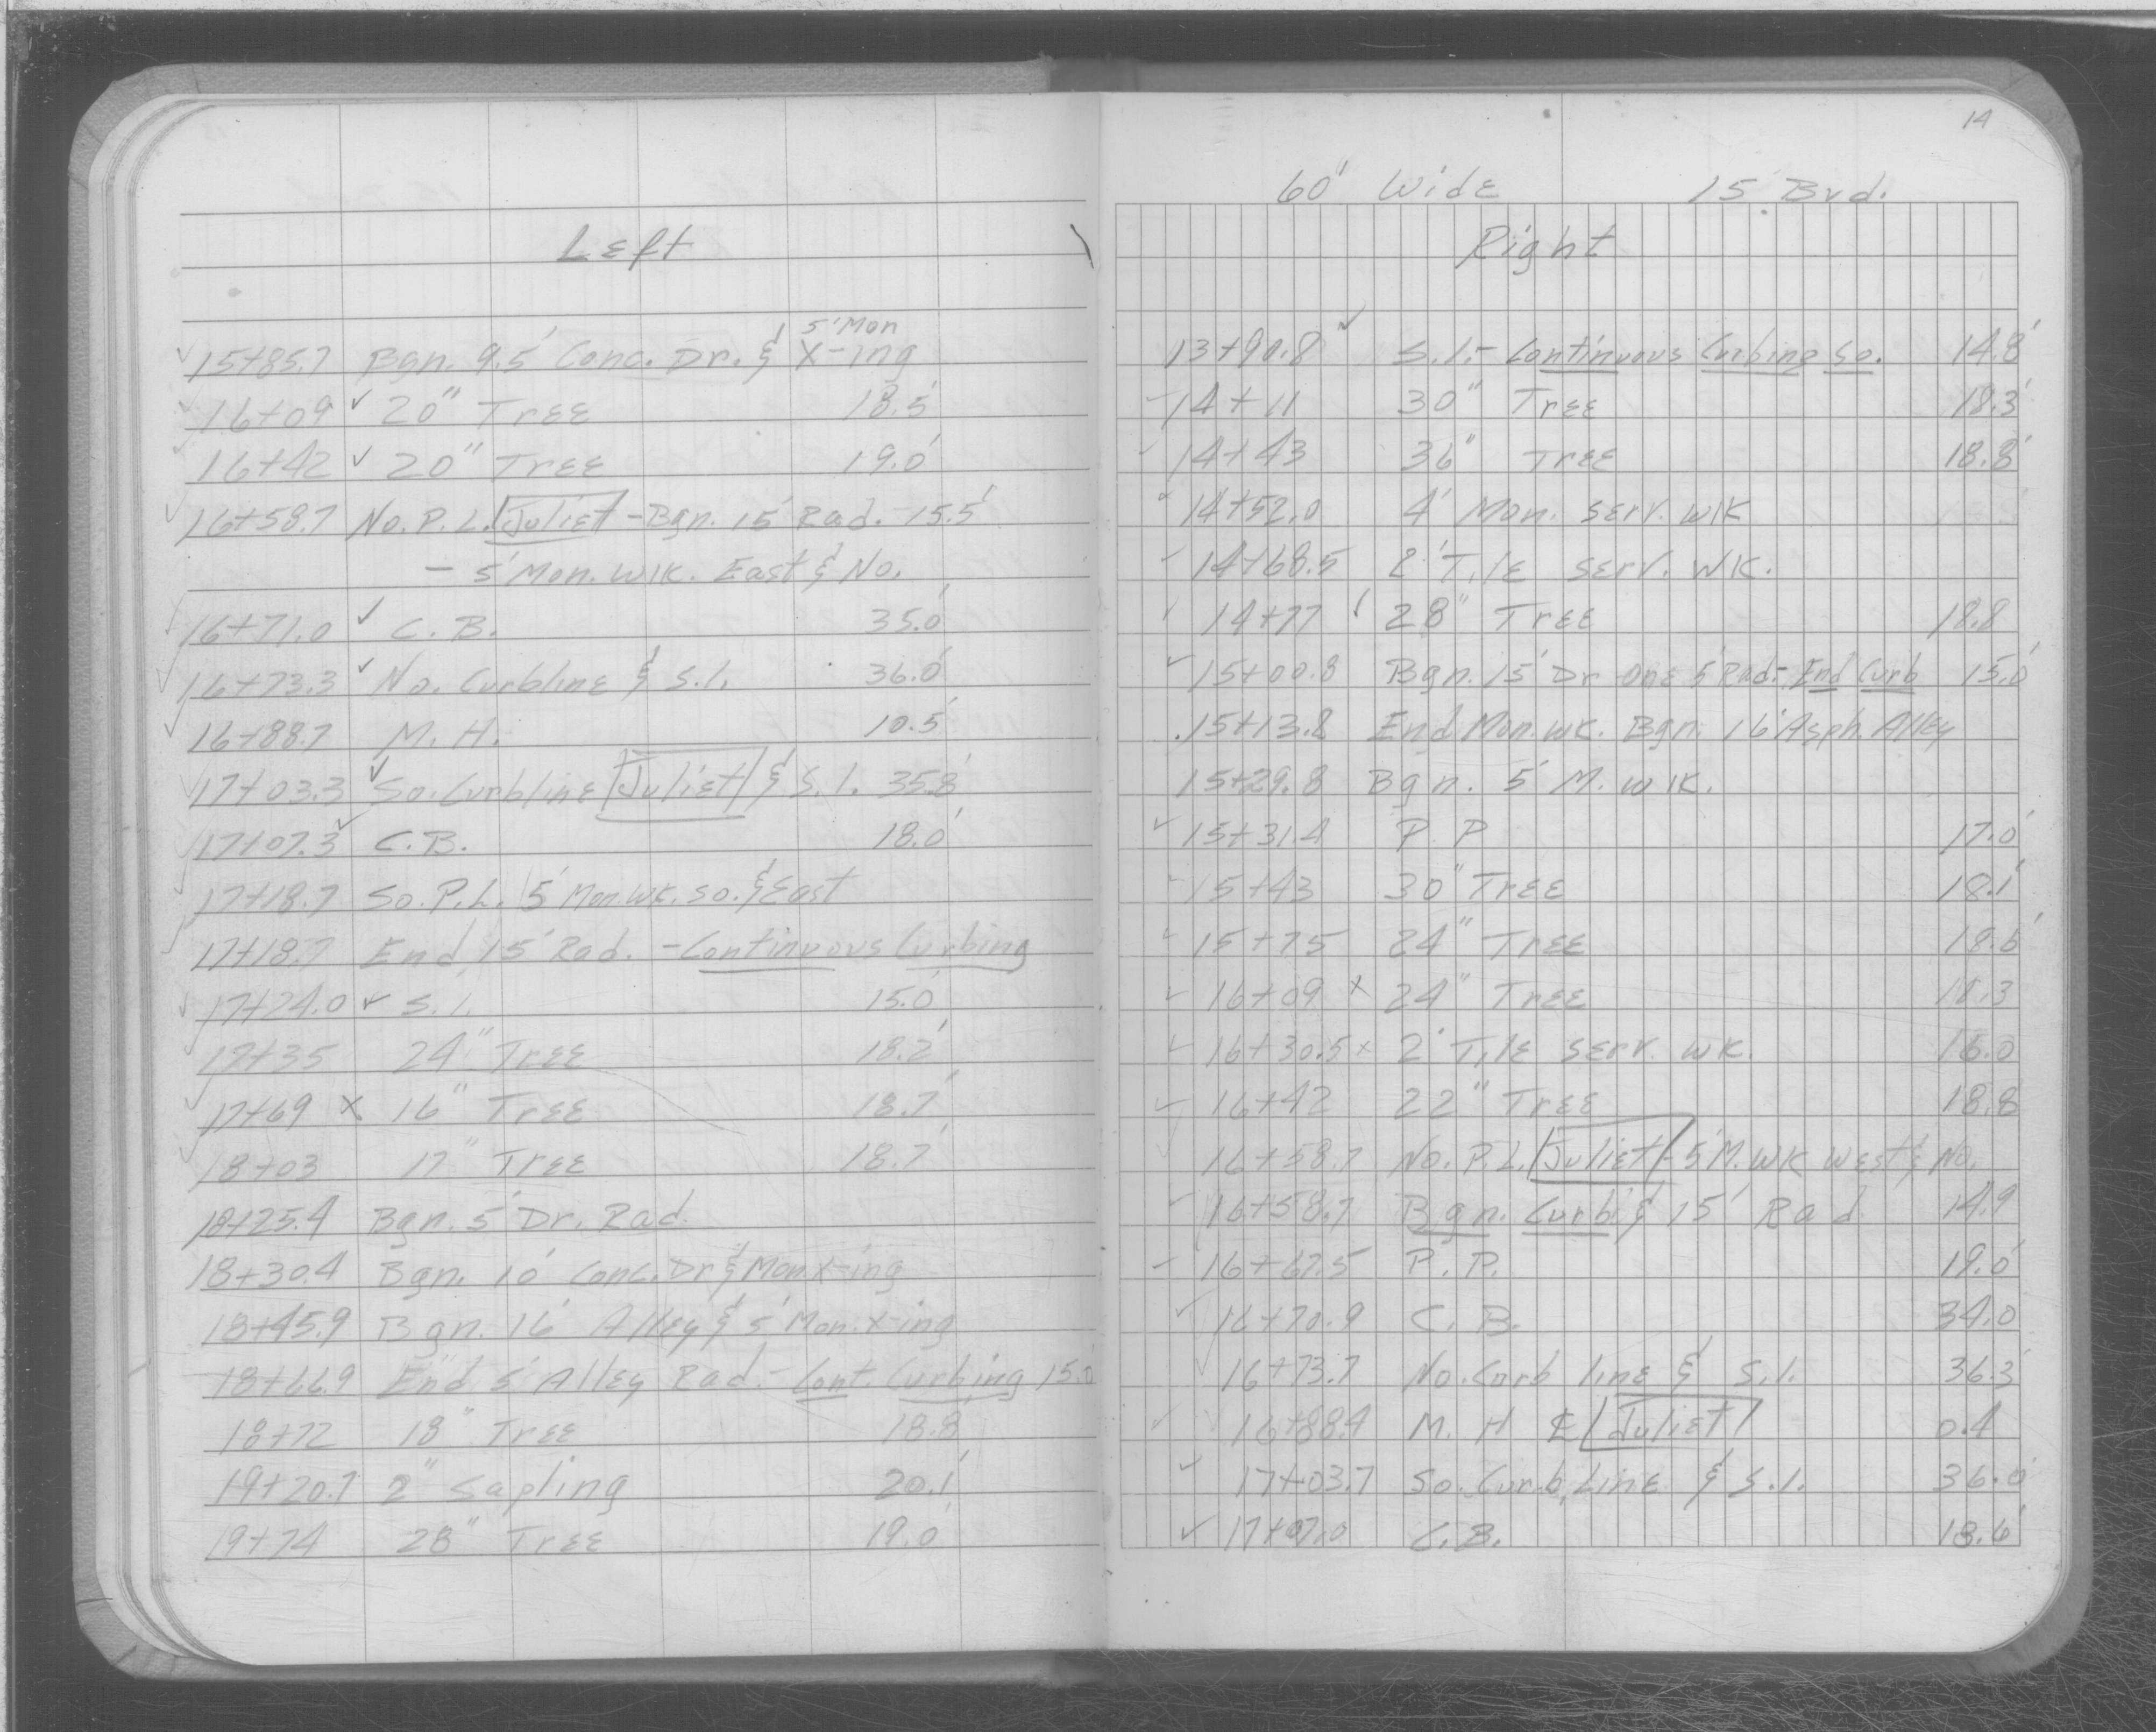 14
60' Wide 15' Bvd.
Left
✓ 15+85.7 Bgn. 9.5' Conc. Dr. & 5' Mon X-ing
✓ 16+09 ✓ 20" Tree 18.5'
✓ 16+42 ✓ 20" Tree 19.0'
✓ 16+58.7 No. P.L. Juliet - Bgn. 15' Rad. - 15.5'
- 5' Mon. Wlk. East & No.
✓ 16+71.0 ✓ C.B. 35.0'
✓ 16+73.3 ✓ No. Curbline & S.I. 36.0'
✓ 16+88.7 M.H. 10.5'
✓ 17+03.3 ✓ So. Curbline Juliet & S.I. 35.8'
✓ 17+07.3 ✓ C.B. 18.0'
✓ 17+18.7 So. P.L. 5' Mon. Wk. So. & East
✓ 17+18.7 End 15' Rad. - Continuous Curbing
✓ 17+24.0 ✓ S.I. 15.0'
✓ 17+35 24" Tree 18.2'
✓ 17+69 x 16" Tree 18.7'
✓ 18+03 17" Tree 18.7'
18+25.4 Bgn. 5' Dr. Rad.
18+30.4 Bgn. 10' Conc. Dr & Mon. X-ing
18+45.9 Bgn. 16' Alley & 5' Mon. X-ing
18+66.9 End 5' Alley Rad. - Cont. Curbing 15.0'
18+72 18" Tree 18.8'
19+20.7 2" Sapling 20.1'
19+74 28" Tree 19.0'
Right
13+90.8 ✓ S.I. - Continuous Curbing So. 14.8'
✓ 14+11 30" Tree 18.3'
✓ 14+43 36" Tree 18.8'
✓ 14+52.0 4' Mon. Serv. Wlk
✓ 14+68.5 2' Tile Serv. Wk.
✓ 14+77 ✓ 28" Tree 18.8
✓ 15+00.8 Bgn. 15' Dr One 5' Rad. - End Curb 15.0'
15+13.8 End Mon. Wk. Bgn. 16' Asph. Alley
15+29.8 Bgn. 5' M. Wlk.
✓ 15+31.4 P.P 17.0'
✓ 15+43 30" Tree 18.1'
✓ 15+75 24" Tree 18.6'
✓ 16+09 x 24" Tree 18.3
✓ 16+30.5 x 2' Tile Serv. Wk. 16.0
✓ 16+42 22" Tree 18.8
✓ 16+58.7 No. P.L. Juliet - 5' M. Wk West & No.
✓ 16+58.7 Bgn. Curb & 15' Rad 14.9
✓ 16+67.5 P.P. 19.0'
✓ 16+70.9 C.B. 34.0
✓ 16+73.7 No. Curb line & S.I. 36.3'
✓ 16+88.4 M.H ℄ Juliet 0.4
✓ 17+03.7 So. Curb Line & S.I. 36.0'
✓ 17+07.0 C.B. 18.6'